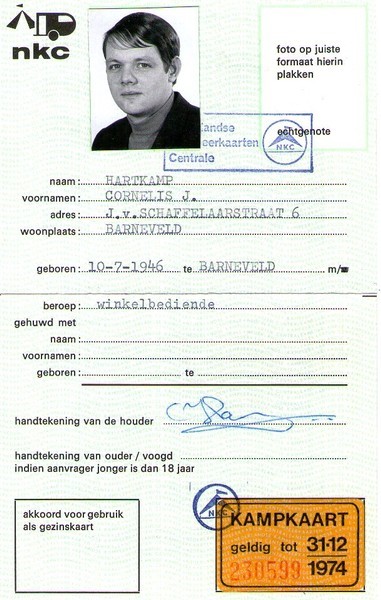 nkc
foto op juiste
formaat hierin
plakken
echtgenote
Centrale
NKC
naam: HARTKAMP
voornamen: CORNELIS J.
adres: J.v.SCHAFFELAARSTRAAT 6
woonplaats: BARNEVELD
geboren: 10-7-1946 te BARNEVELD m/
beroep: winkelbediende
gehuwd met
naam:
voornamen:
geboren: te
handtekening van de houder
handtekening van ouder / voogd
indien aanvrager jonger is dan 18 jaar
akkoord voor gebruik
als gezinskaart
NKC
KAMPKAART
geldig tot 31-12
1974
230599